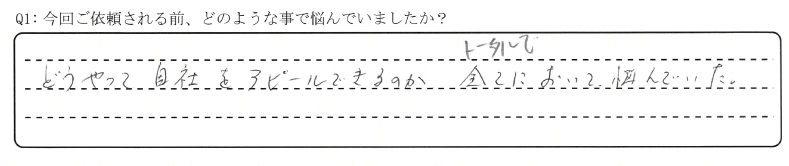 Q1：今回ご依頼される前、どのような事で悩んでいましたか？
トータルで
どうやって 自社をアピールできるのか 全てにおいて悩んでいた。